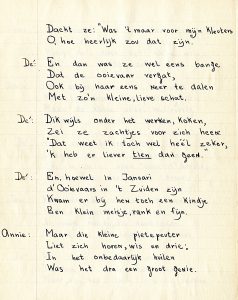 Dacht ze: "Was 't maar voor mijn kleuters
O, hoe heerlijk zou dat zijn.
De: En dan was ze wel eens bange
Dat de ooievaar vergat,
Ook bij haar eens neer te dalen
Met zo'n kleine, lieve schat.
De: Dikwijls onder het werken, koken,
Zei ze zachtjes voor zich heen
"Dat weet ik toch wel heel zeker,
'k heb er liever tien dan geen".
De: En, hoewel in Januari
d'Ooievaars in 't Zuiden zijn
Kwam er bij hen toch een kindje
Een klein meisje, rank en fijn.
Annie: Maar die kleine pietepeuter
Liet zich horen, wis en drie;
In het onbedaarlijk huilen
Was het dra een groot genie.